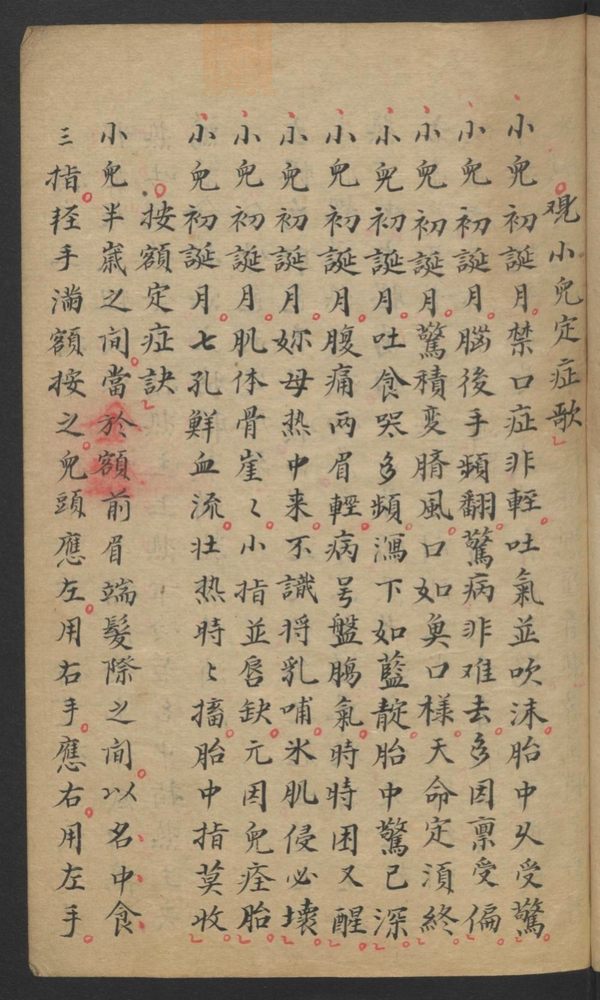 覌小兒定症歌
小兒初誕月禁口症非輕吐氣並吹沫胎中又受驚
小兒初誕月腦後手頻翻驚病非难去多因禀受偏
小兒初誕月驚積变臍風口如臭口様天命定須終
小兒初誕月吐食哭多頻瀉下如藍靛胎中驚已深
小兒初誕月腹痛両眉輕病号盤膓氣時時困又醒
小兒初誕月妳母热中来不識将乳哺氷肌侵必壊
小兒初誕月肌体骨崖〻小指並唇缺元因兒痊胎
小兒初誕月七孔鮮血流壮热時〻搐胎中指莫收
按額定症訣
小兒半嵗之间當於額前眉端髮際之间以名中食
三指軽手満額按之兒頭應左用右手應右用左手